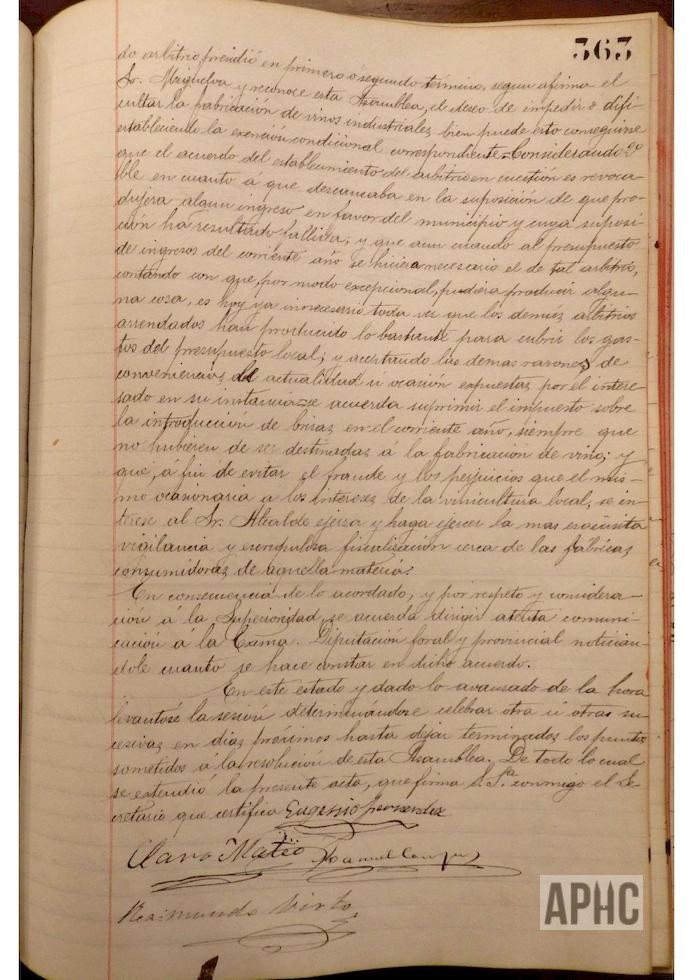 363
do arbitrio presidió en primero ó segundo término, segun afirma el
Sr. Miguelva y reconoce esta Asamblea, el deseo de impedir ó difi-
cultar la fabricación de vinos industriales, bien puede esto conseguirse
estableciendo la exención condicional correspondiente. Considerando 2º
que el acuerdo del establecimiento del arbitrio en cuestión es revoca-
ble en cuanto á que descansaba en la suposición de que pro-
dujera algun ingreso en favor del municipio y cuya suposi-
ción ha resultado fallida; y que aun cuando al presupuesto
de ingresos del corriente año se hiciera necesario el de tal arbitrio,
contando con que, por modo excepcional, pudiera producir algu-
na cosa, es hoy ya innecesario toda vez que los demas arbitrios
arrendados han producido lo bastante para cubrir los gas-
tos del presupuesto local; y aceptando las demas razones de
conveniencias de actualidad u ocasión expuestas por el intere-
sado en su instancia=se acuerda suprimir el impuesto sobre
la introducción de brisas en el corriente año, siempre que
no hubieren de ser destinadas á la fabricacion de vino; y
que, á fin de evitar el fraude y los perjuicios que el mis-
mo ocasionaria a los intereses de la vinicultura local, se in-
terese al Sr. Alcalde ejerza y haga ejercer la mas exquisita
vigilancia y escrupulosa fiscalización cerca de las fábricas
consumidoras de aquella materia.
En consecuencia de lo acordado, y por respeto y considera-
ción á la Superioridad, se acuerda dirigir atenta comuni-
cación á la Excma. Diputación foral y provincial notician-
dole cuanto se hace constar en dicho acuerdo.
En este estado y dado lo avansado de la hora
levantóse la sesión determinándose celebrar otra ú otras su-
cesivas en dias proximos hasta dejar terminados los puntos
sometidos á la resolución de esta Asamblea. De todo lo cual
se extendió la presente acta, que firma S. Sª. conmigo el Se-
cretario que certifico Eugenio
Claro Mateo Manuel
Raimundo Virto
APHC